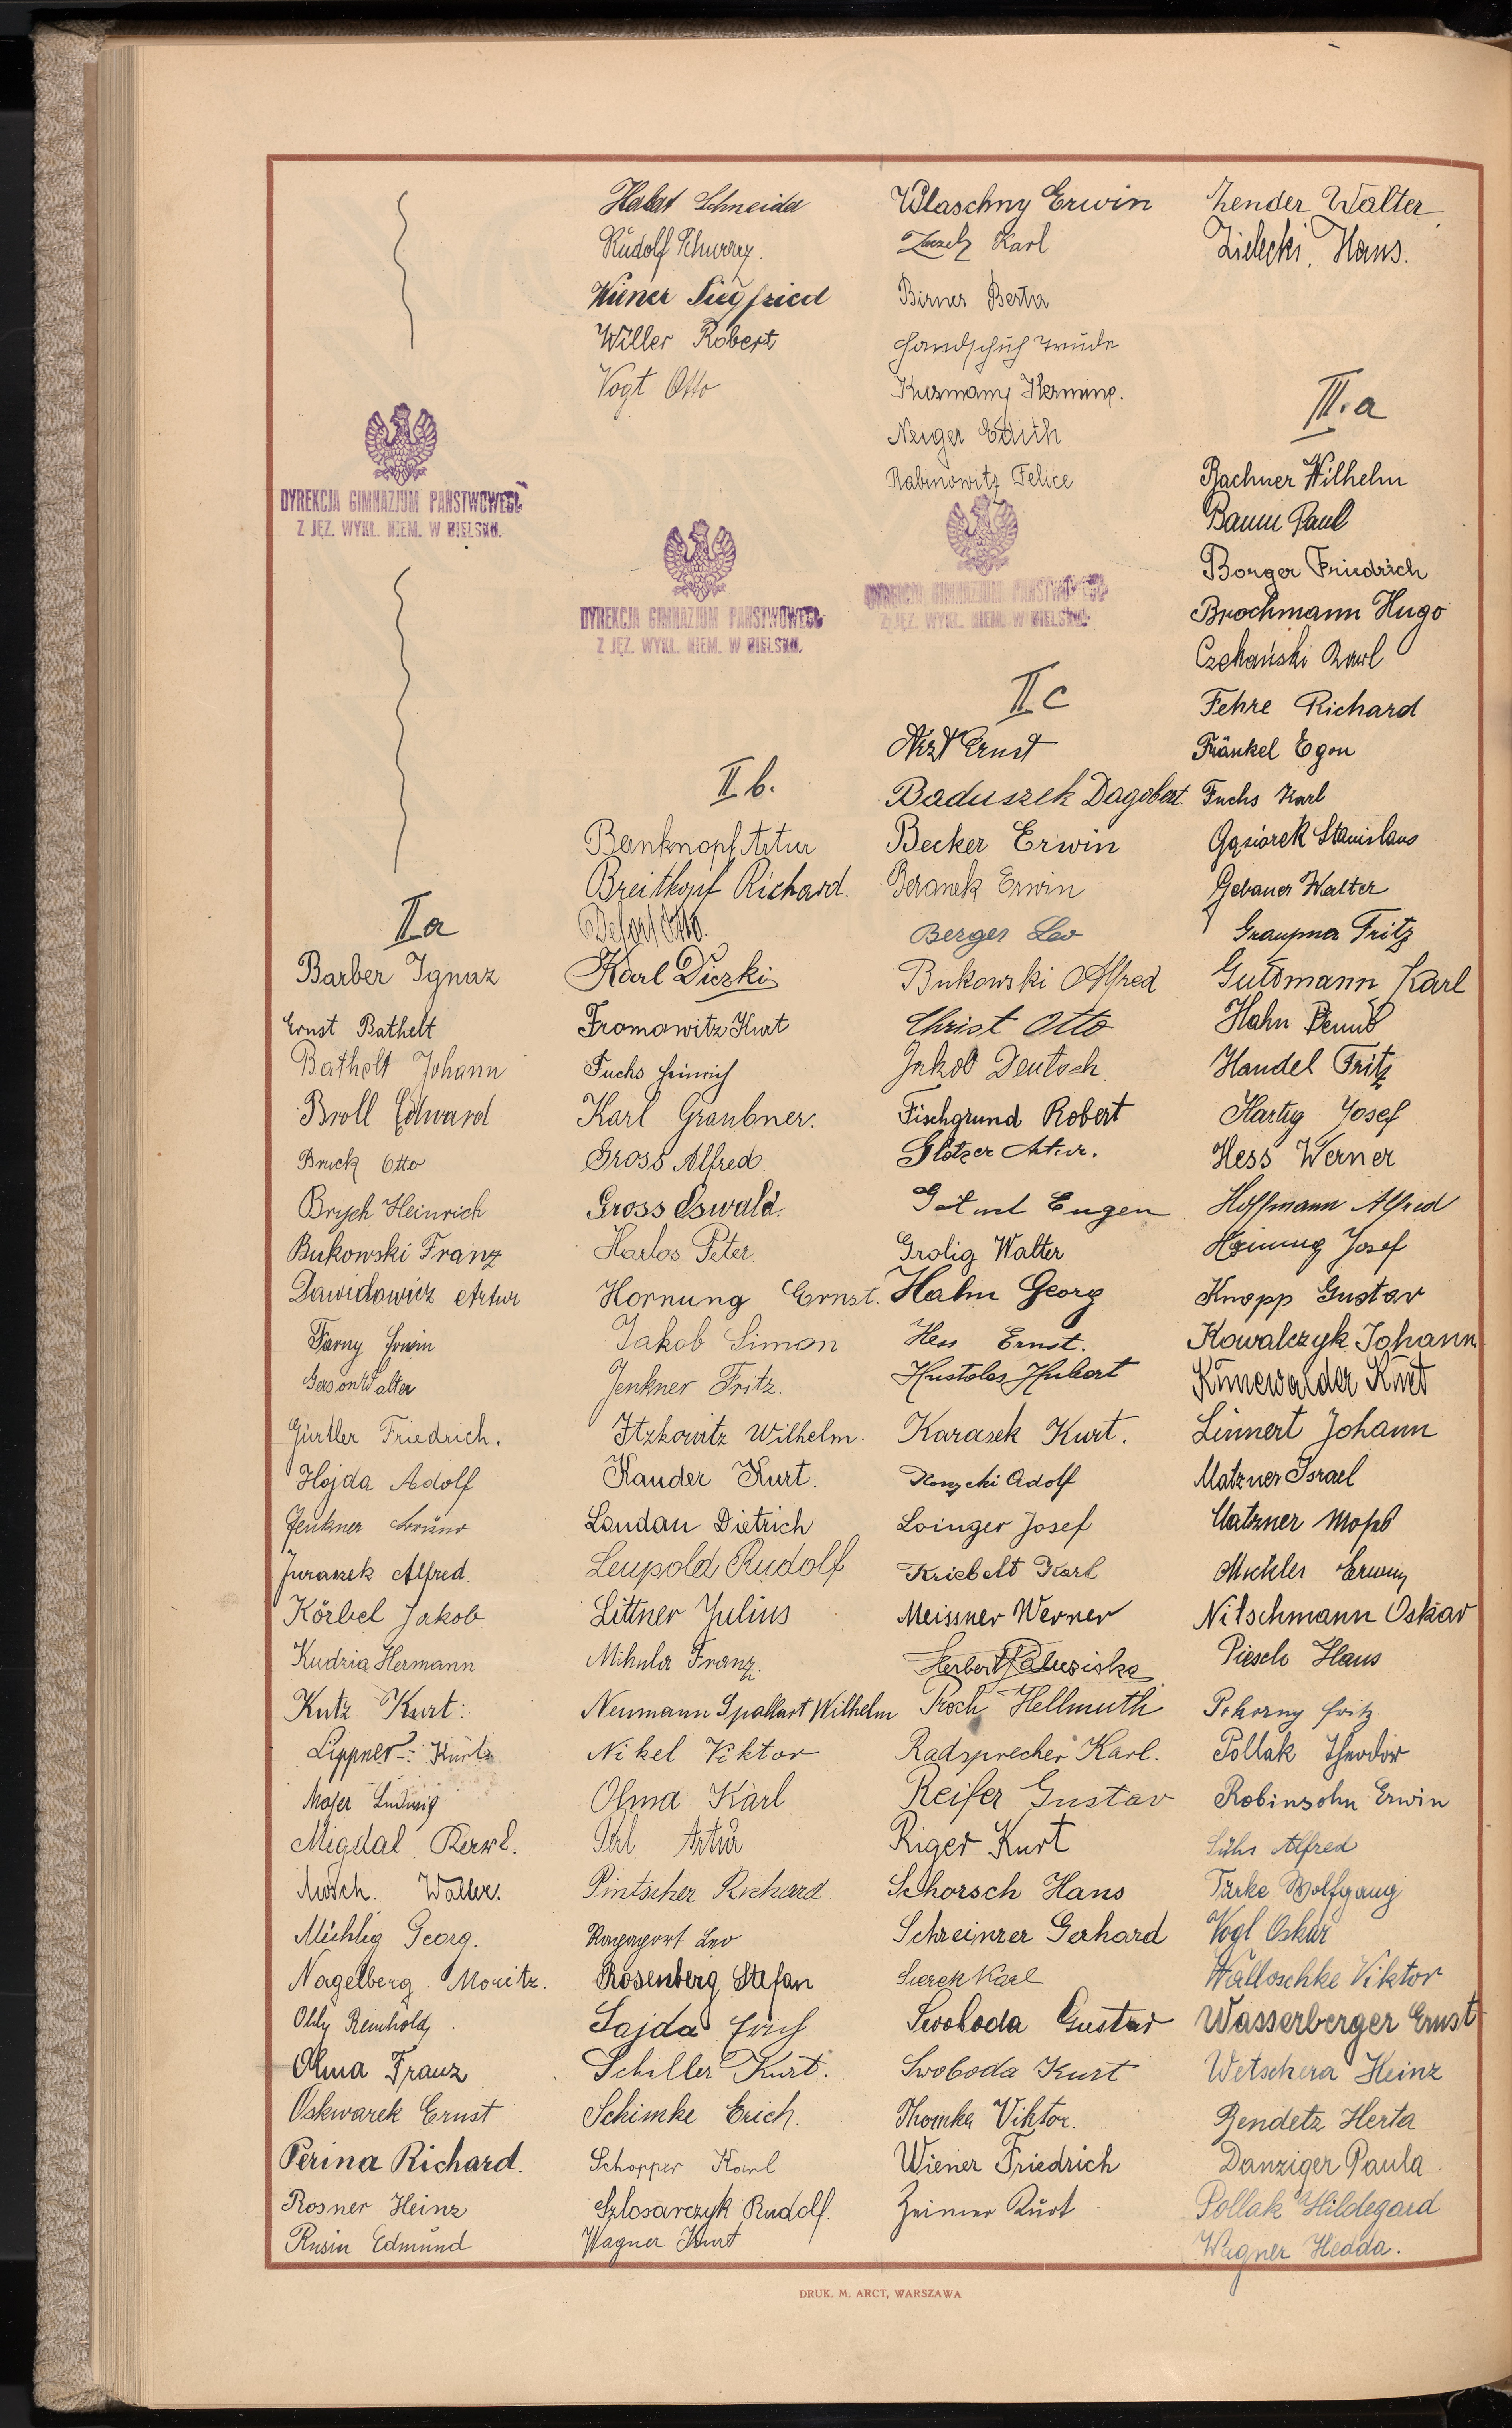 DYREKCJA GIMNAZJUM PAŃSTWOWEGO
Z JĘZ. WYKŁ. NIEM. W BIELSKU.
II a
Barber Ignaz
Ernst Bathelt
Bathelt Johann
Broll Edward
Bruck Otto
Brych Heinrich
Bukowski Franz
Dawidowicz Artur
Farny Erwin
Gerson Walter
Gürtler Friedrich.
Hojda Adolf
Jenkner Bruno
Juraszek Alfred.
Körbel Jakob
Kudzia Hermann
Kutz Kurt.
Lippner Kurt
Moser Ludwig
Migdal Karl.
Mosch. Walter.
Mühlig Georg.
Nagelberg Moritz.
Ohly Reinhold
Olma Franz
Oskwarek Ernst
Perina Richard.
Rosner Heinz
Rusin Edmund
Schneider
Rudolf
Wiener Siegfried
Willer Robert
Vogt Otto
DYREKCJA GIMNAZJUM PAŃSTWOWEGO
Z JĘZ. WYKŁ. NIEM. W BIELSKU.
II b.
Banknopf Artur
Breitkopf Richard.
Otto.
Karl Diczki
Fromowitz Kurt
Fuchs Heinrich
Karl Graubner.
Gross Alfred
Gross Oswald.
Harlos Peter
Hornung Ernst.
Jakob Simon
Jenkner Fritz.
Itzkowitz Wilhelm.
Kauder Kurt.
Landau Dietrich
Leupold Rudolf
Littner Julius
Mikula Franz.
Neumann Spallart Wilhelm
Nikel Viktor
Olma Karl
Perl Artur
Pintscher Richard.
Rapaport Leo
Rosenberg Stefan
Sajda Erich
Schiller Kurt.
Schimke Erich.
Schopper Karl
Szlosarczyk Rudolf.
Wagner Kurt
Wlaschny Erwin
Karl
Birner Berta
Handschuh Trude
Kuzmany Hermine.
Neiger Edith
Rabinowitz Felice
DYREKCJA GIMNAZJUM PAŃSTWOWEGO
Z JĘZ. WYKŁ. NIEM. W BIELSKU.
II c
Arzt Ernst
Baduszek Dagobert
Becker Erwin
Beranek Erwin
Berger Leo
Bukowski Alfred
Christ Otto
Jakob Deutsch.
Fischgrund Robert
Glotzer Artur.
Eugen
Grolig Walter
Hahn Georg
Hess Ernst.
Hubert
Karasek Kurt.
Adolf
Loinger Josef
Kriebelt Karl
Meissner Werner
Herbert
Proch Hellmuth
Radsprecher Karl.
Reifer Gustav
Riger Kurt
Schorsch Hans
Schreinzer Gerhard
Sierek Karl
Swoboda Gustav
Swoboda Kurt
Thomke Viktor.
Wiener Friedrich
Zeimer Kurt
Zender Walter
Zielecki Hans.
III. a
Bachner Wilhelm
Baum Paul
Borger Friedrich
Brochmann Hugo
Czekański Karl
Fehre Richard
Fränkel Egon
Fuchs Karl
Gąsiorek Stanislaus
Gebauer Walter
Graupner Fritz
Guttmann Karl
Hahn Benno
Handel Fritz
Hartig Josef
Hess Werner
Hoffmann Alfred
Josef
Knopp Gustav
Kowalczyk Johann
Künewalder Kurt
Linnert Johann
Matzner Israel
Matzner Moses
Mickler Erwin
Nitschmann Oskar
Piesch Hans
Pokorny Fritz
Pollak Theodor
Robinsohn Erwin
Sühs Alfred
Türke Wolfgang
Vogl Oskar
Walloschke Viktor
Wasserberger Ernst
Wetschera Heinz
Bendetz Herta
Danziger Paula
Pollak Hildegard
Wagner Hedda.
DRUK. M. ARCT, WARSZAWA